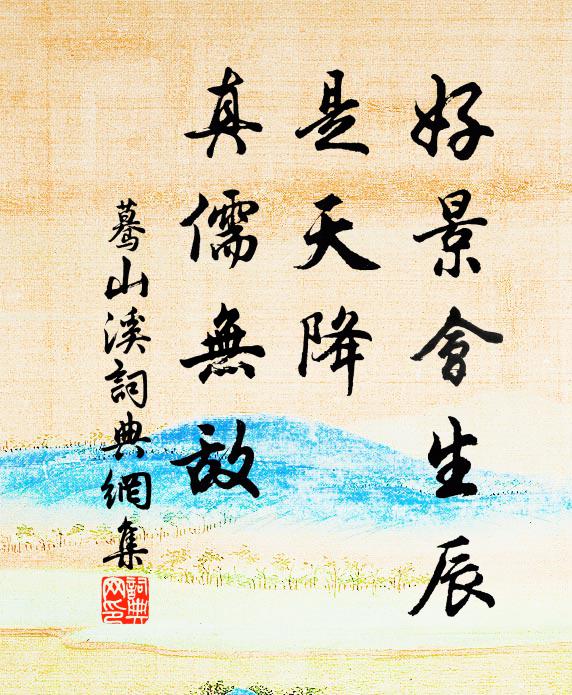 好景會生辰
是天降
真儒無敵
驀山溪詞典網集
詞典網印